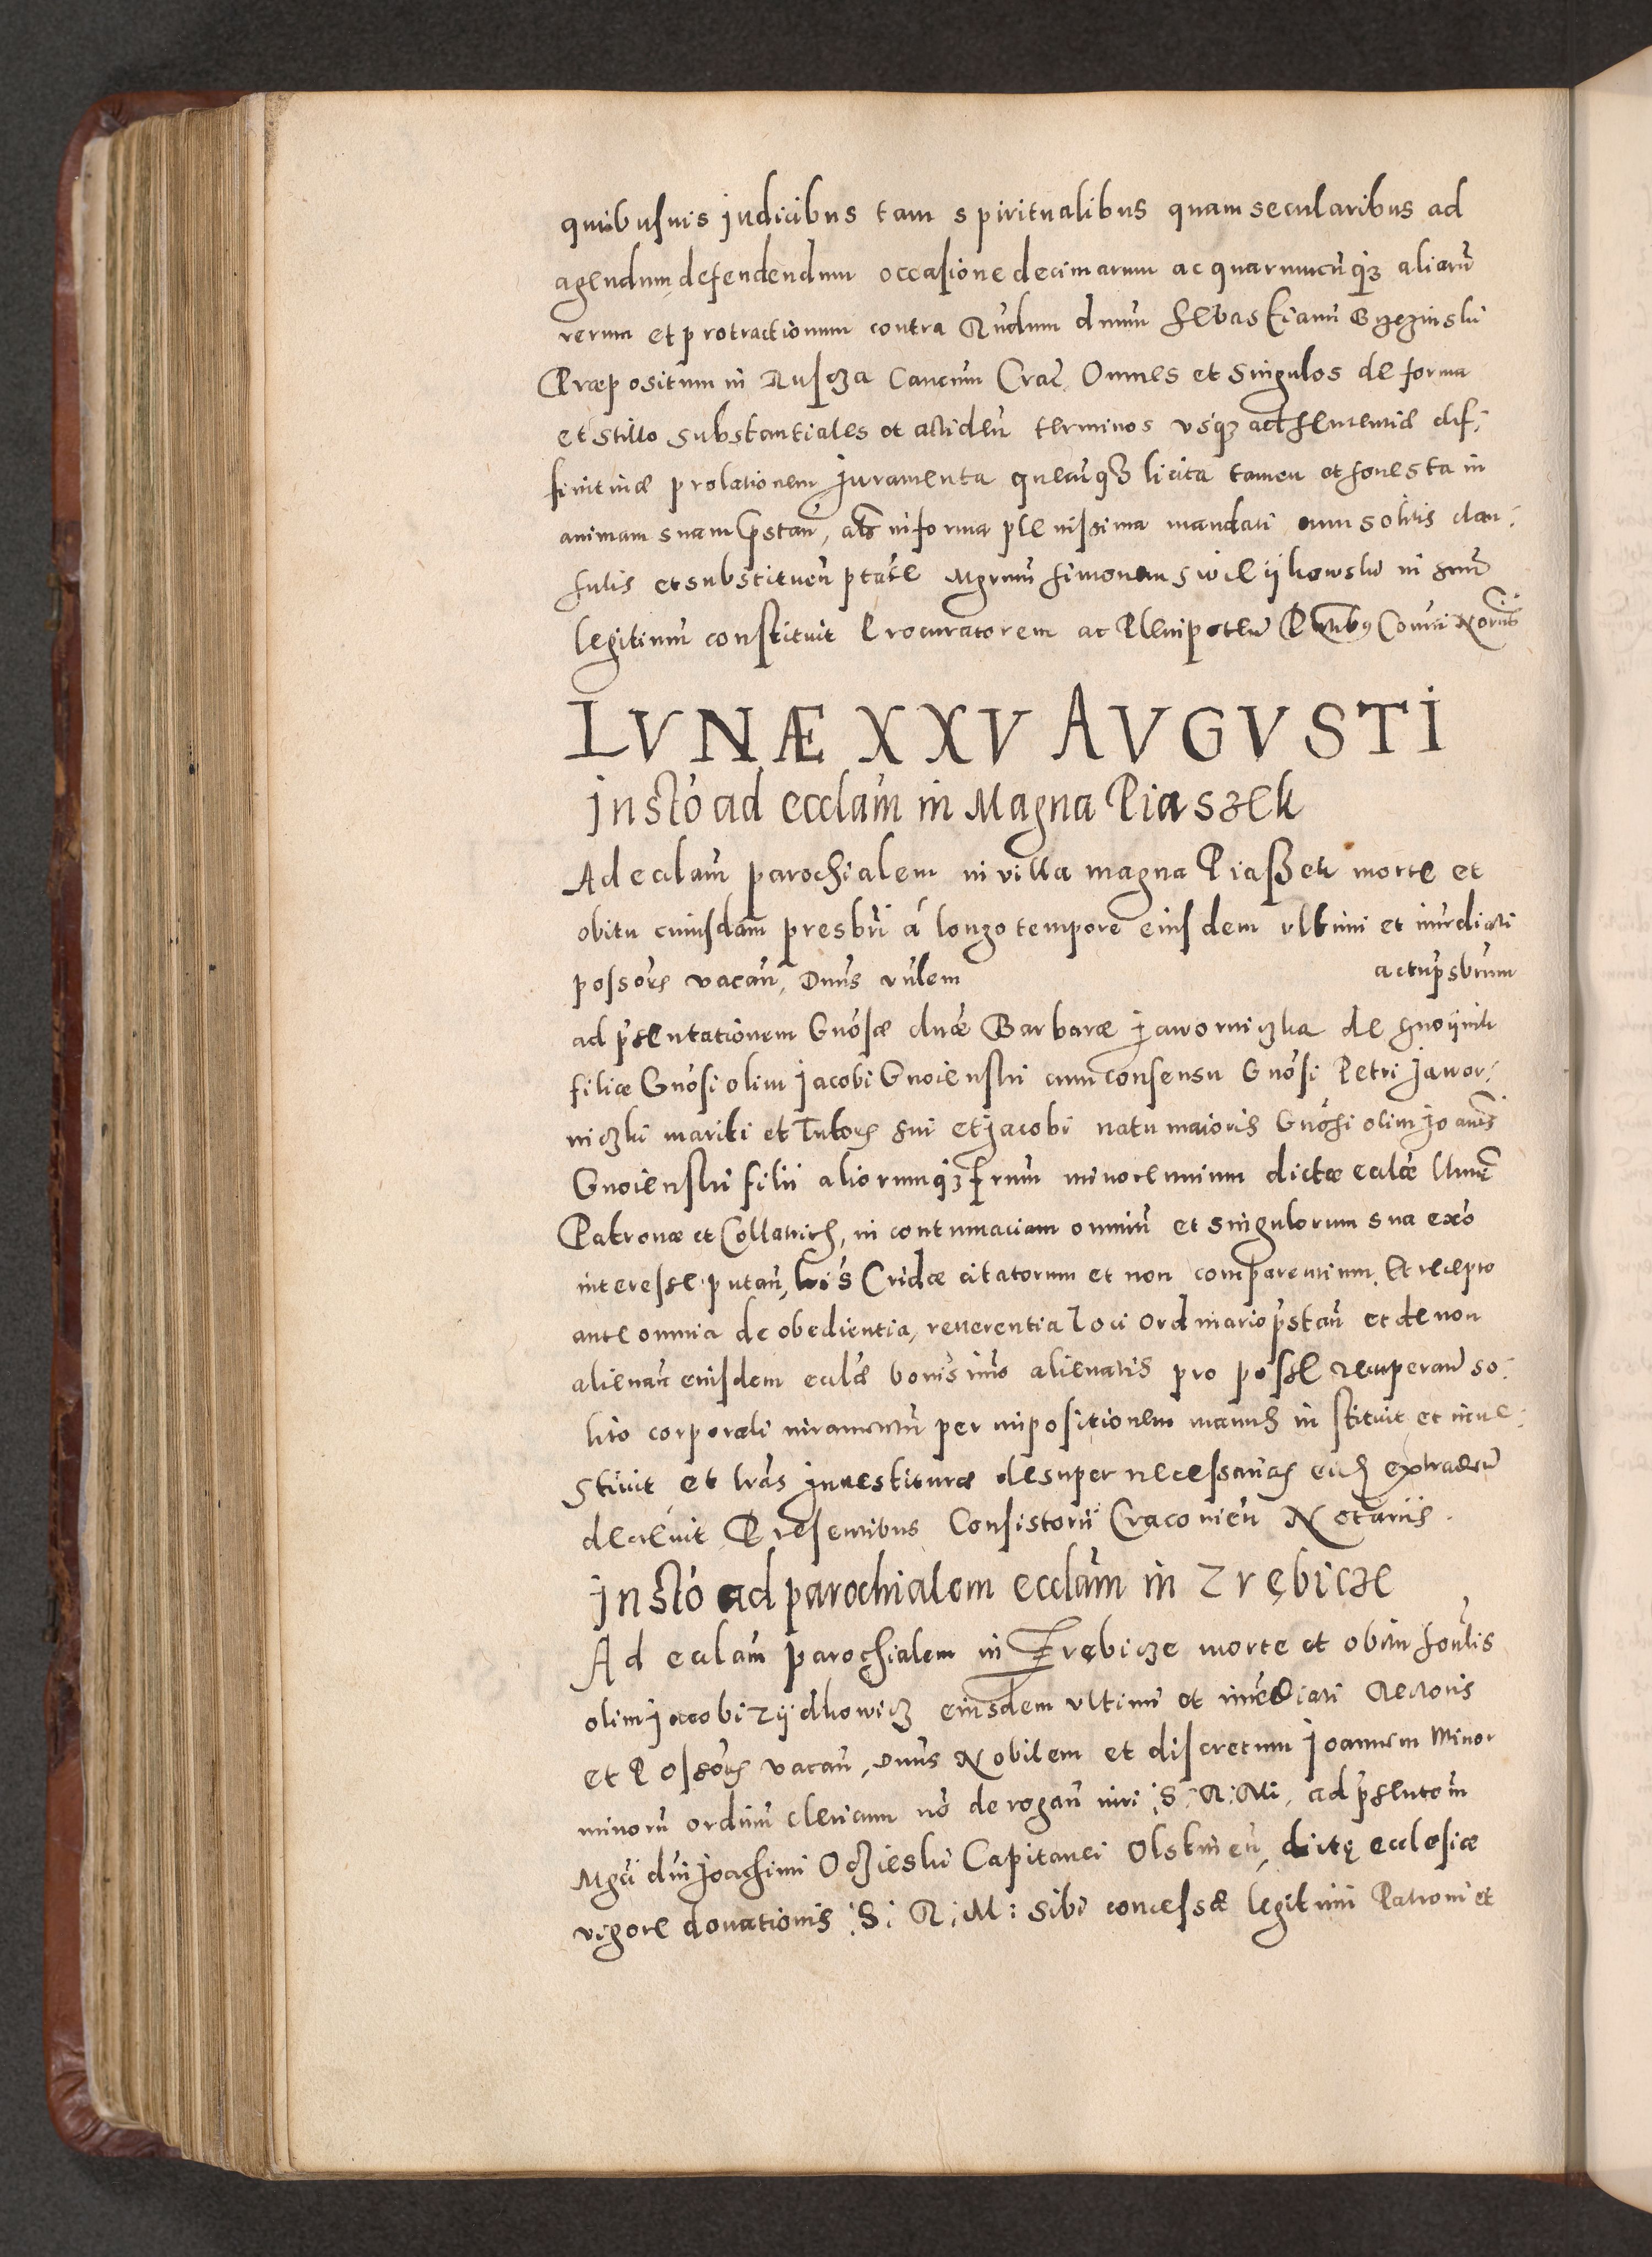 quibusuis judicibus tam spiritualibus quam secularibus ad
agendum, defendendum occasione decimarum ac quarumcūq₃ aliarū
rerum et protractionum contra Rndum dnum Sebastianū Grzezinski
Præpositum in Ruscza Cancum Crac̄. Omnes et Singulos de forma
et stillo substantiales et accidēn terminos vsq₃ ad sententiæ dif:
finitiuæ prolationem Juramenta quecūq₃ licita tamen et honesta in
animam suam p̄stan̄, als in forma plenissima mandati cum solitis clau:
sulis et substituen̄ p̄tate Mgrum Simonem Swieijkowski in suū
legitimū constituit Procuratorem ac Plenipoten̄ Pntibus Convi Norijs
LVNÆ XXV AVGVSTI
Jnstō ad ecclam̄ in Magna Piaszek
Ad ecclam̄ parochialem in villa magna Piaßek morte et
obitu cuiusdam presbri á longo tempore eiusdem vltimi et imediati
possoris vacan̄, Dnus rulem actu psbrum
ad p̄sentationem Gnosæ dnæ Barbaræ Jaworniczka de Gnoijnik
filiæ Gnosi olim Jacobi Gnoienski cum consensu Gnosi Petri Jawor:
niczki mariti et Tutoris sui et Jacobi natu maioris Gnosi olim Joanis
Gnoienski filii aliorumq₃ frum minorennium dictæ ecclæ
Patronæ et Collatricis, in contumaciam omniū et singulorum sua exō
interesse putan̄, Cridæ citatorum et non comparentium. Et recepto
ante omnia de obedientia, reuerentia loci Ordinario p̄stan̄ et de non
alienan̄ eiusdem ecclæ bonis imo alienatis pro posse recuperan̄ so:
lito corporali iuramento per impositionem manus instituit et inue:
stiuit et lras Jnuestituræ desuper necessarias extraden̄
decreuit Presentibus Consistorij Cracouien̄ Notarijs.
Jnstō ad parochialem ecclam̄ in Trębicze
Ad ecclam̄ parochialem in Trębicze morte et obitu honlis
olim Jacobi Zijdkowicz eiusdem vltimi et imediati Rectoris
et Possoris vacan̄, Dnus Nobilem et discretum Joannem Minor
minorū ordinū clericum nō derogan̄ iuri :S: R: Mi, ad p̄sentom̄
Mgci dni Joachimi Oczieski Capitanei Olstinen̄, dictę ecclesiæ
vigore donationis :S: R: M: Sibi concessæ legitimi Patroni et